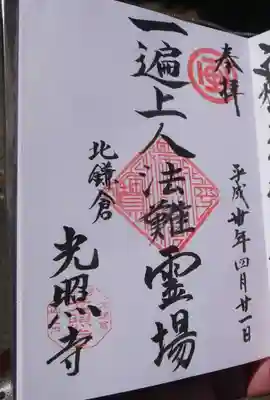 奉拝
平成廿年四月廿一日
一遍上人法難霊場
北鎌倉
光照寺